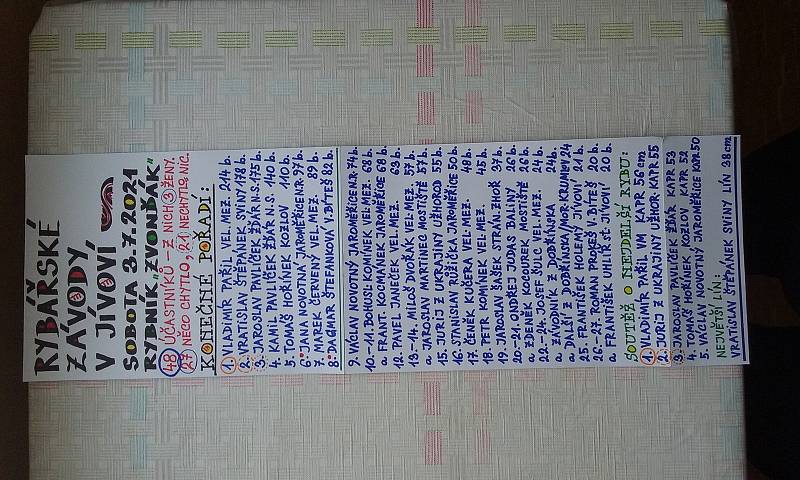 RYBÁŘSKÉ
ZÁVODY
V JÍVOVÍ
SOBOTA 3.7.2021
RYBNÍK „ZVONĎÁK"
48 ÚČASTNÍKŮ - Z NICH 3 ŽENY.
27 NĚCO CHYTLO, 21 NECHYTLO NIC.
KONEČNÉ POŘADÍ:
1. VLADIMÍR PAŘIL VEL. MEZ. 214 b.
2. VRATISLAV ŠTĚPÁNEK SVINY 178 b.
3. JAROSLAV PAVLÍČEK ŽĎÁR N.S. 175 b.
4. KAMIL PAVLÍČEK ŽĎÁR N.S. 140 b.
5. TOMÁŠ HOŘÍNEK KOZLOV 110 b.
6. JANA NOVOTNÁ JAROMĚŘICE N.R. 97 b.
7. MAREK ČERVENÝ VEL. MEZ. 89 b.
8. DAGMAR ŠTEFANKOVÁ V.BÍTEŠ 82 b.
9. VÁCLAV NOVOTNÝ JAROMĚŘICE N.R. 74 b.
10.-11. BOHUSL. KOMÍNEK VEL. MEZ. 68 b.
a FRANT. KOCMÁNEK JAROMĚŘICE 68 b.
12. PAVEL JANEČEK VEL. MEZ. 63 b.
13.-14. MILOŠ DVOŘÁK VEL. MEZ. 57 b.
a JAROSLAV MARTINEC MOSTIŠTĚ 57 b.
15. JURIJ Z UKRAJINY UŽHOROD 55 b.
16. STANISLAV RŮŽIČKA JAROMĚŘICE 50 b.
17. ČENĚK KUČERA VEL. MEZ. 48 b.
18. PETR KOMÍNEK VEL. MEZ. 45 b.
19. JAROSLAV SAŠEK STRÁN. ZHOŘ 37 b.
20.-21. ONDŘEJ JUDAS BALINY 26 b.
a ZDENĚK KOCOUREK MOSTIŠTĚ 26 b.
22.-24. JOSEF ŠULC VEL. MEZ. 24 b.
a ZÁVODNÍK Z DOBŘÍNSKA 24 b.
a DALŠÍ Z DOBŘÍNSKA/MOR. KRUMLOV 24
25. FRANTIŠEK HOLEMÝ JÍVOVÍ 21 b.
26.-27. ROMAN PROKEŠ V. BÍTEŠ 20 b.
a FRANTIŠEK UHLÍŘ st. JÍVOVÍ 20 b.
SOUTĚŽ O NEJDELŠÍ RYBU:
1. VLADIMÍR PAŘIL VM KAPR 56 cm
2. JURIJ Z UKRAJINY UŽHOR. KAPR 55
3. JAROSLAV PAVLÍČEK ŽĎÁR KAPR 53
4. TOMÁŠ HOŘÍNEK KOZLOV KAPR 52
5. VÁCLAV NOVOTNÝ JAROMĚŘICE KAPR 50
NEJVĚTŠÍ LÍN:
VRATISLAV ŠTĚPÁNEK SVINY LÍN 38cm